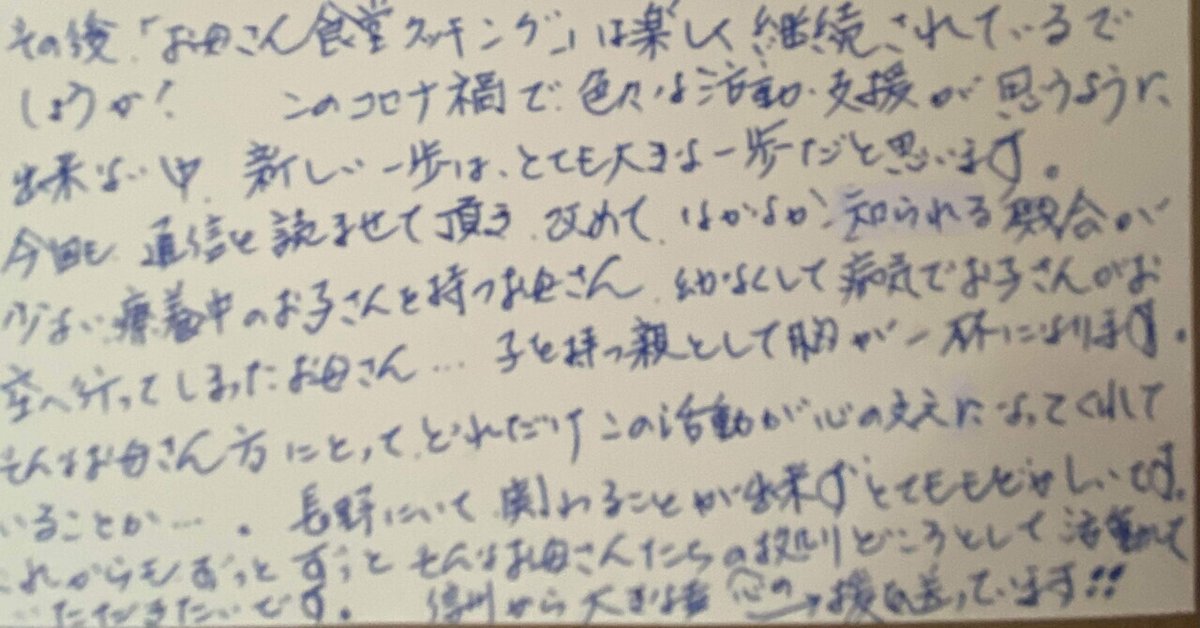 その後、「お母さん食堂クッキング」は楽しく継続されているで
しょうか!　このコロナ禍で色々な活動・支援が思うように
出来ない中、新しい一歩は、とても大きな一歩だと思います。
今回も、通信を読ませて頂き、改めて、なかなか知られる機会が
少ない療養中のお子さんを持つお母さん、幼なくして病気でお子さんがお
空へ行ってしまったお母さん… 子を持つ親として胸が一杯になります。
そんなお母さん方にとって、どれだけこの活動が心の支えになってくれて
いることか…。長野にいて関わることが出来ずとてももどかしいです。
これからもずっとずっとそんなお母さんたちの拠りどころとして活動して
いただきたいです。信州から大きな 心の 援を送っています!!